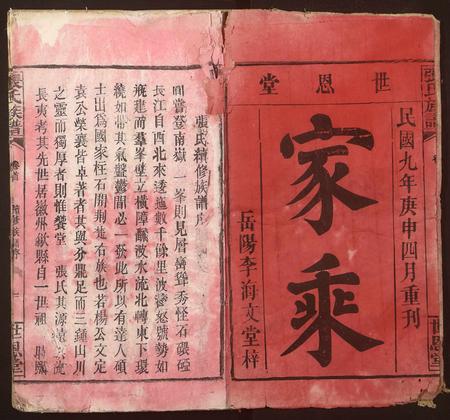 世恩堂
民國九年庚申四月重刊
家乘
岳陽李海文堂梓
張氏族譜
世恩堂
張氏續修族譜序
回嘗登南嶽一峯則見層巒聳秀怪石
長江自西北來透迤數千餘里波濤怒號勢如
建而羣峯壁立橫障 波水流北轉東下環
繞如帶其氣盤鬱閒必一發此所以有達人碩
士出爲國家柱石閒荆楚右族也若楊公文定
袁公榮襄皆卓著者其與分鼎足而三鍾山川
之靈而獨厚者則惟饗堂 張氏其源遠流
長夷考其先世居徽州歙縣自一世祖
張氏族譜
卷首
世恩堂